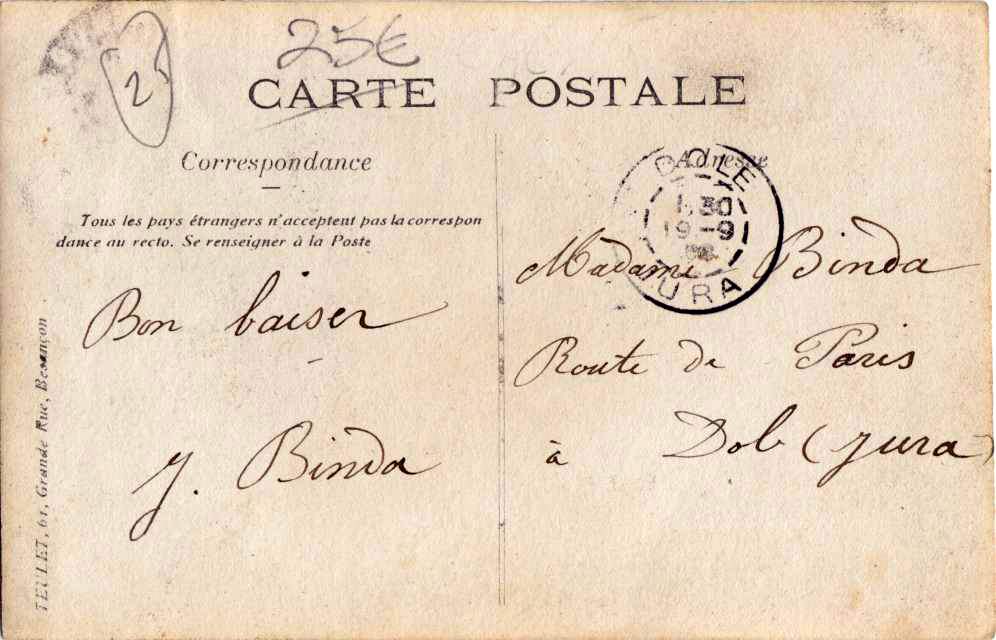 25
25€
CARTE POSTALE
Correspondance
Adresse
Tous les pays étrangers n'acceptent pas la correspon
dance au recto. Se renseigner à la Poste
DOLE
1 30
19-9
JURA
Madame Binda
Bon baiser
Route de Paris
J. Binda
à Dole (Jura)
TEULET, 61, Grande Rue, Besançon